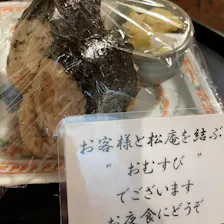 お客様と松庵を結ぶ
"おむすび"
でございます
お夜食にどうぞ